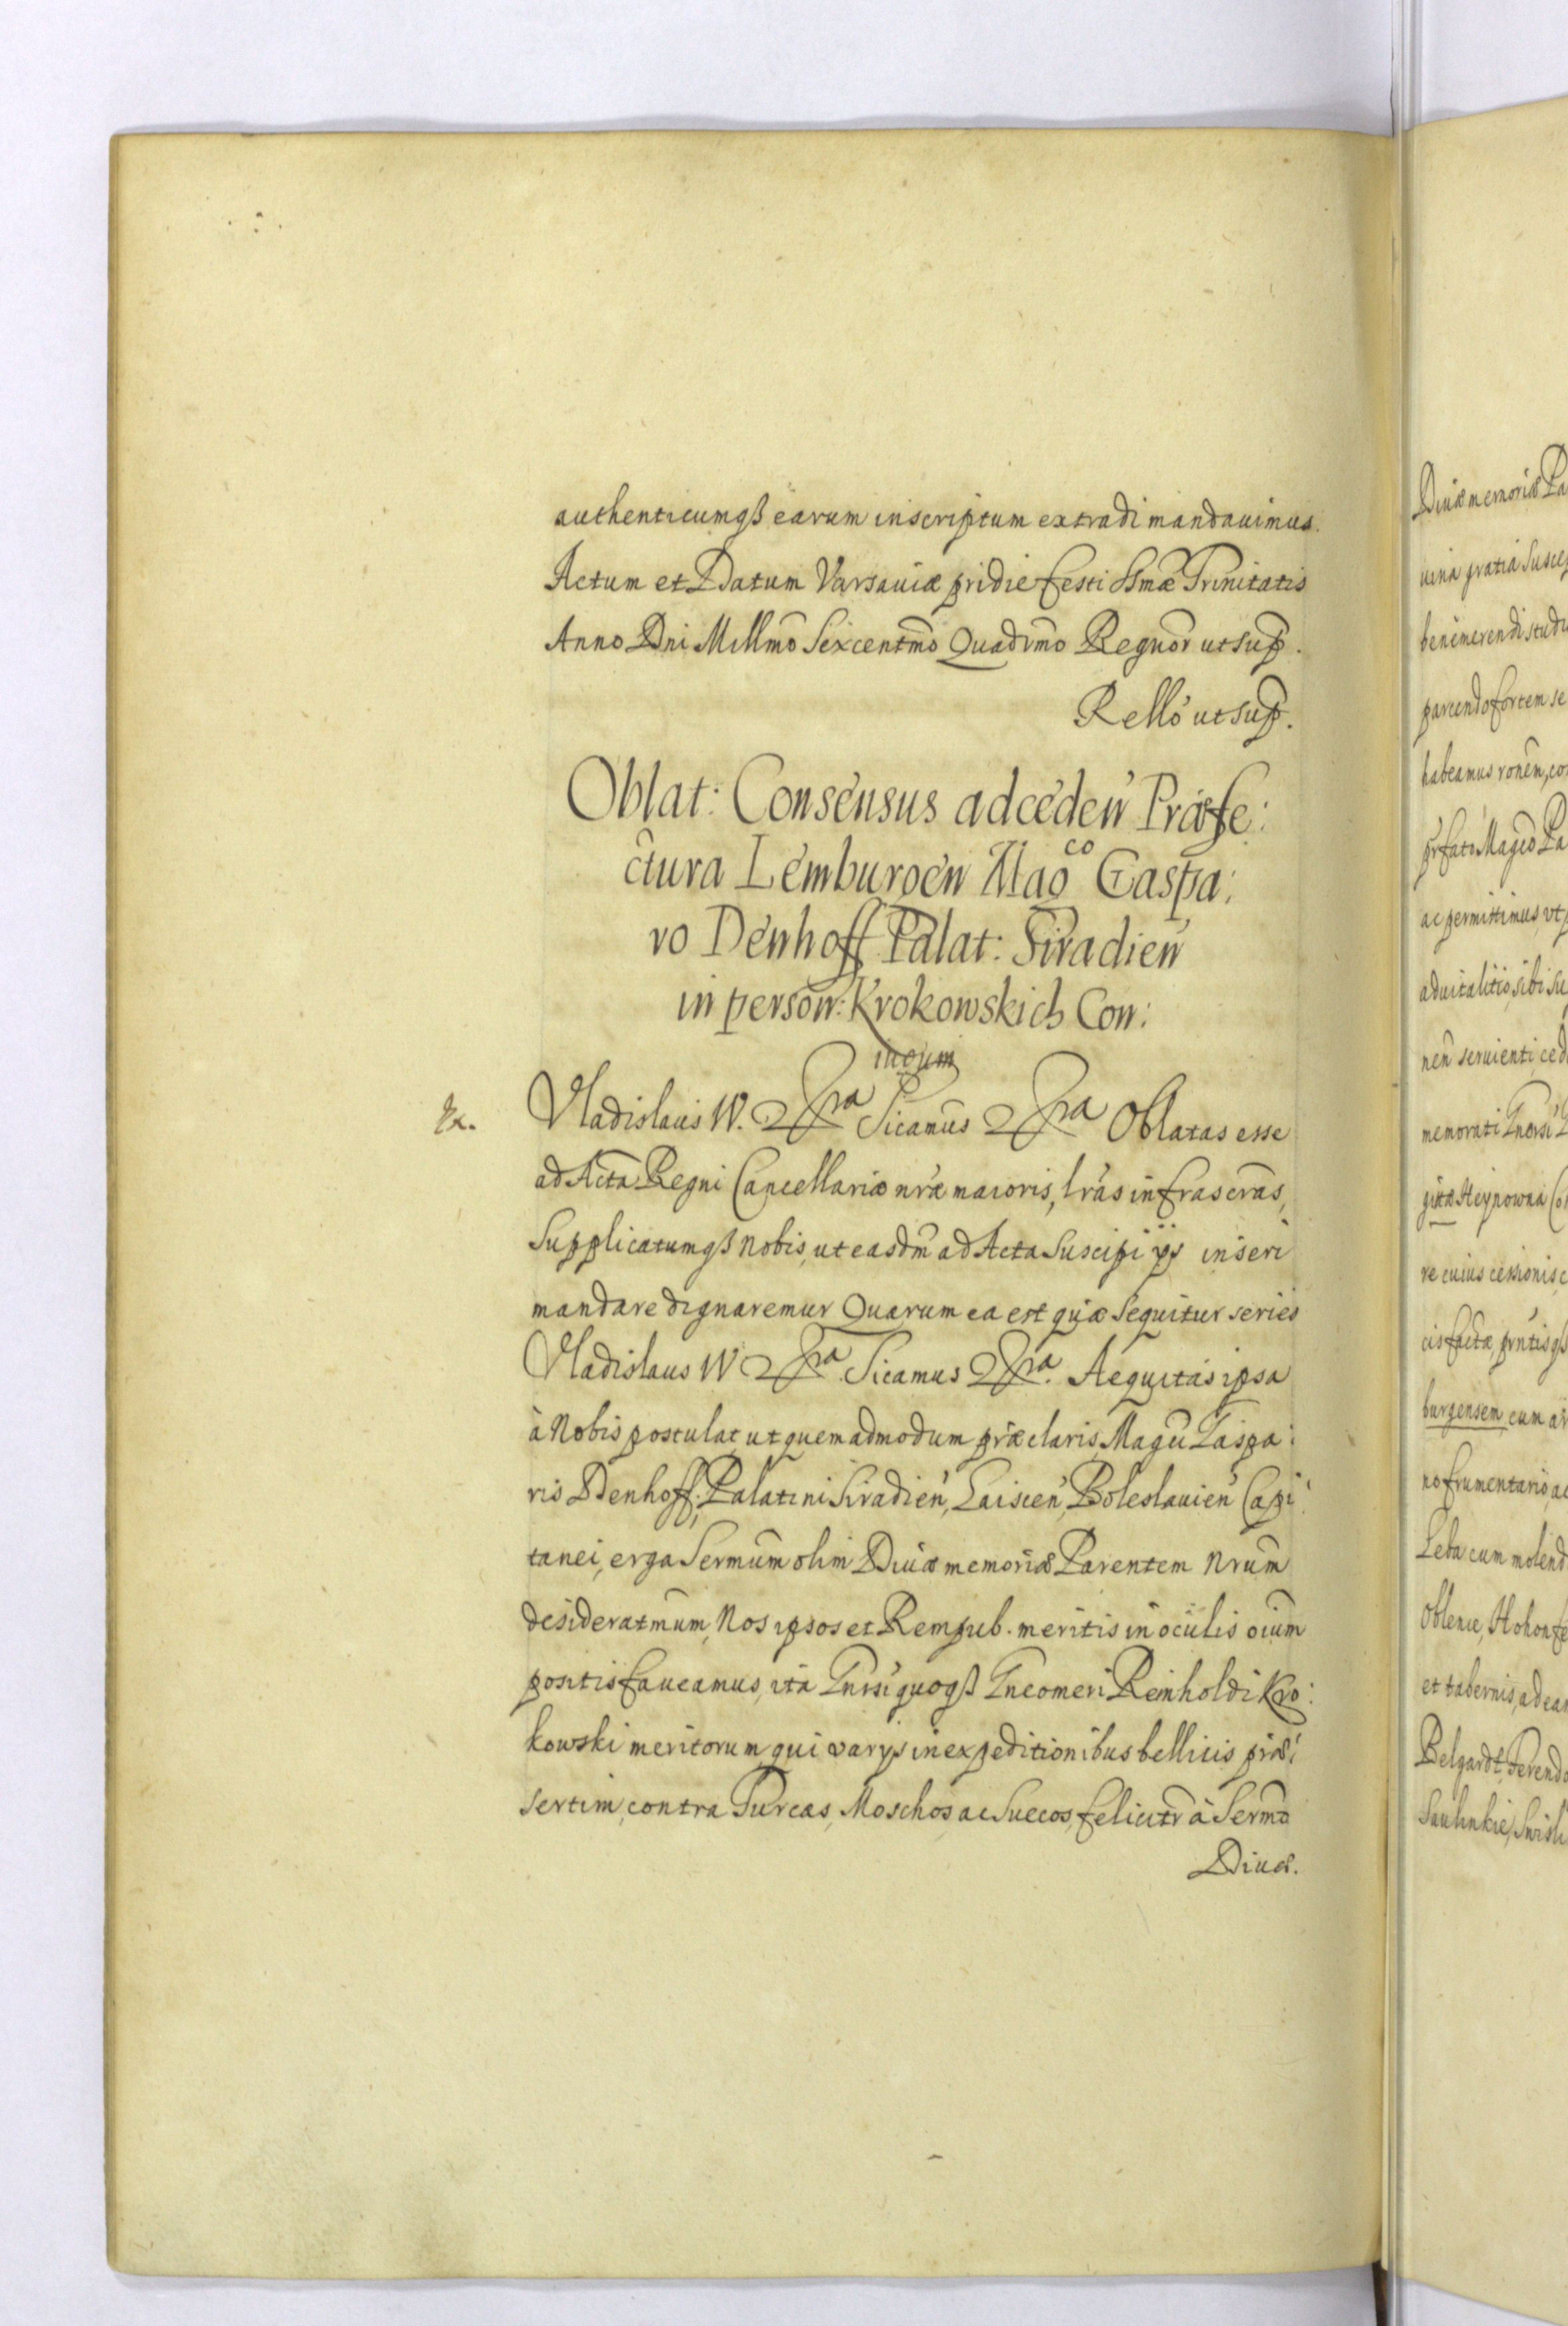 authenticumqß earum inscriptum extradi mandauimus.
Actum et Datum Varsauiæ pridie festi SSmæ Trinitatis
Anno Dni Millmo Sexcentmo Quadrmo Regnor ut sup.
Rello ut sup.
Oblat: Consensus ad ceden Præfe:
ctura Lemburgen Mag co Gaspa:
ro Denhoff Palat: Siradien
in person: Krokowskich Con:
iugum
&. Vladislaus IV. &ra Sicamus &ra Oblatas esse
ad Acta Regni Cancellariæ nræ maioris, lras infrascras,
Supplicatumqß nobis, ut easdm ad Acta Suscipi ijs inseri
mandare dignaremur Quarum ea est quæ sequitur series
Vladislaus IV &ra Sicamus &ra. Aequitas ipsa
à Nobis postulat, ut quemadmodum præclaris, Magci Gaspa:
ris Denhoff, Palatini Siradien, Boleslauien Capi:
tanei, erga Sermum olim Diuæ memoriæ Parentem nrum
desideratmum, Nos ipsos et Rempub. meritis in oculis oium
positis faueamus, ita Gnrsi quoqß Gneomeri Reinholdi Kro:
kowski meritorum, qui varys in expeditionibus bellicis præ:
sertim, contra Turcas, Moschos ac Suecos, felicitr à Sermo
Diuæ.
Diuæ memoriæ Pa
uina gratia Suscep
benemerendi studi
parcendo fortem se
habeamus ronem, co
prfato Magco Pa
ac permittimus, vt p
aduitalitio, sibi su
nen seruienti, ced
memorati Gnersi
gittæ Heynowna Co
re cuius cessionis, c
cis factæ prntis qß
burgensem cum ar
no frumentario ac
Leba cum molend
Oblenie, Hohenfe
et tabernis, ad ea
Belgardt, Ferendo
Saulinkie, Swisli